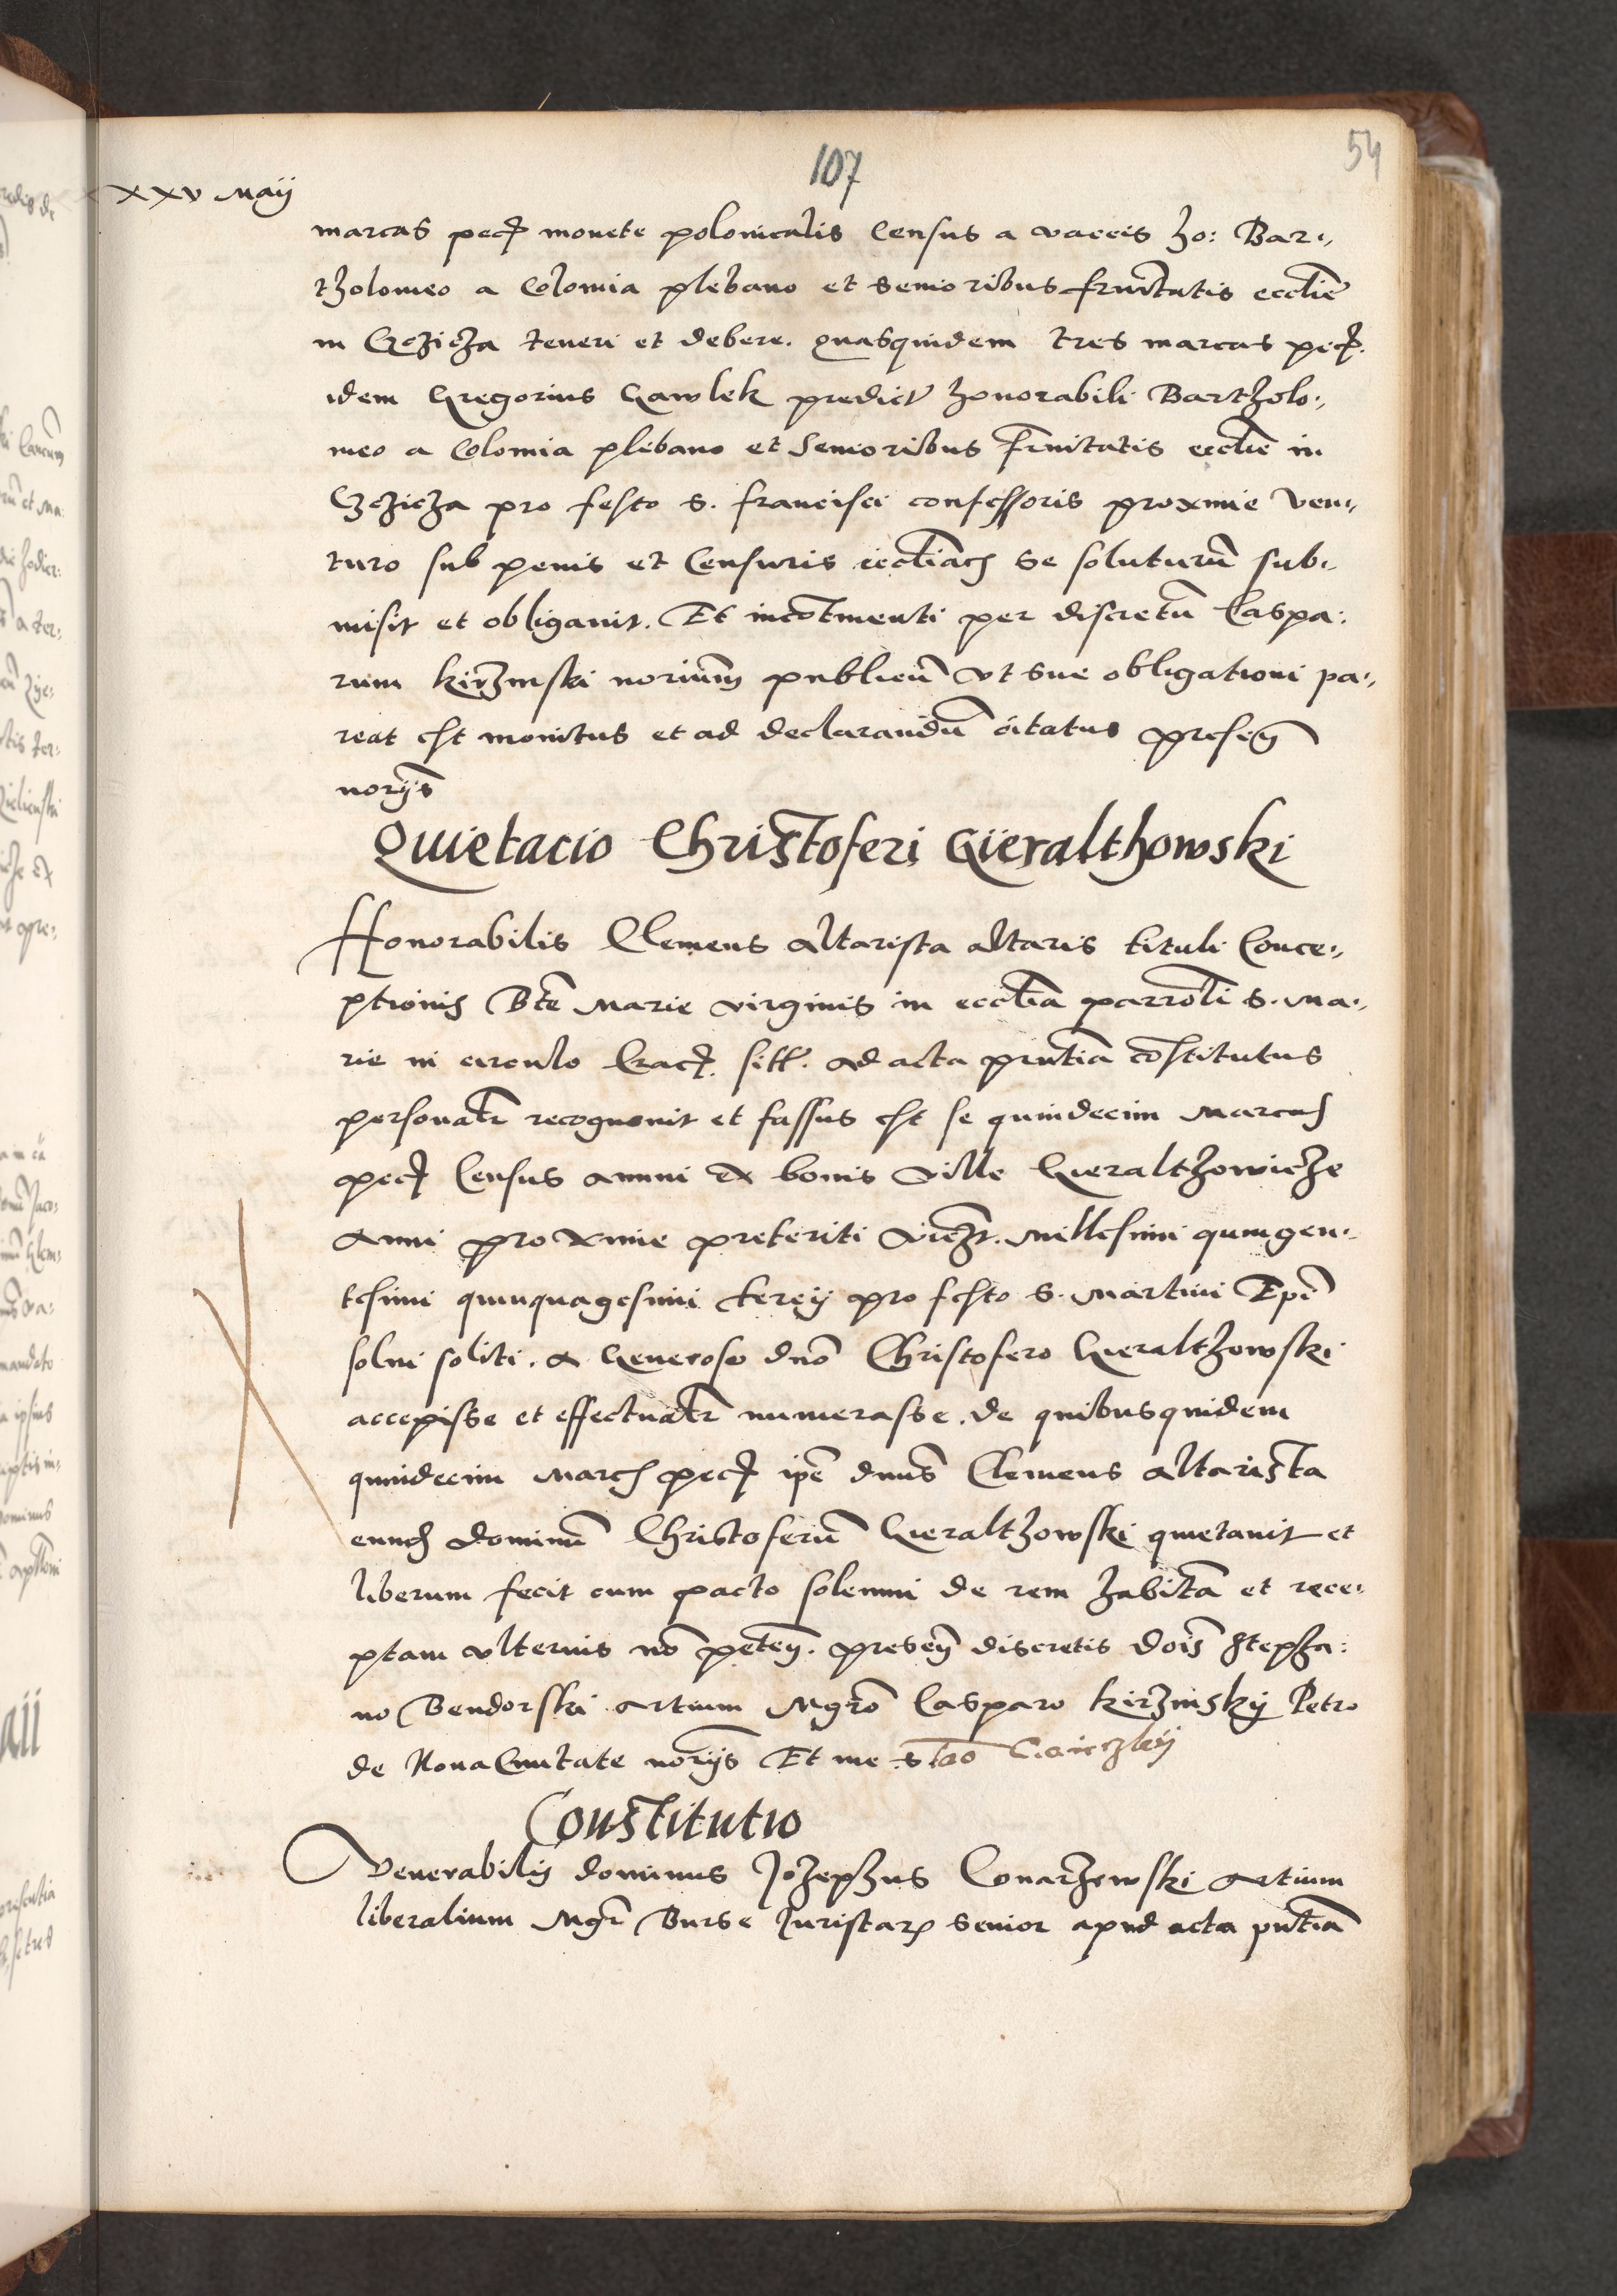 107
54
XXV Maij
marcas pecũ monete polonicalis Census a vaccis ho: Bar-
tholomeo a Colomia plebano et senioribus frnitatis ecclie
in Czczicza teneri et debere. quasquidem tres marcas pecũ.
idem Gregorius Gawlek predict honorabili Bartholo-
meo a Colomia plebano et Senioribus frnitatis ecclie in
Czczicza pro festo S. francisci confessoris proxime ven-
turo sub penis et Censuris eccliacis se soluturũ sub-
misit et obligauit. Et incõtinenti per discretũ Caspa-
rum kirzinski noriũm publicũ vt sue obligationi pa-
reat est monitus et ad declarandũ citatus presen
norijs
Quietacio Christoferi Gieralthowski
Honorabilis Clemens altarista altaris tituli Conce-
ptionis Bte Marie virginis in ecclia parrohi S. Ma-
rie in circulo Crac. sitt. ad acta pñtia cõstitutus
personalr recognouit et fassus est se quindecim Marcas
pecũ Census annui ex bonis ville Gieralthowicze
Anni proxime preteriti vidzt. Millesimi quingen-
tesimi quinquagesimi tercij pro festo S. Martini Epi
solui soliti. a Generoso dno Christofero Gieralthowski
accepisse et effectualr numerasse. de quibusquidem
quindecim marcis pecũ ipe dnus Clemens altarista
eundem dominũ Christoferũ Gieralthowski quietauit et
liberum fecit cum pacto solemni de rem habitã et rece-
ptam vlterius nõ peten. presen discretis dõis Stepha-
no Bendorski artium Mgrõ Casparo kirzinsky Petro
de Noua Ciuitate norijs Et me Slao
Constitutio
Venerabilis dominus Jozephus Conarzewski Artium
liberalium Mgr Burse Juristarum senior apud acta pñtia